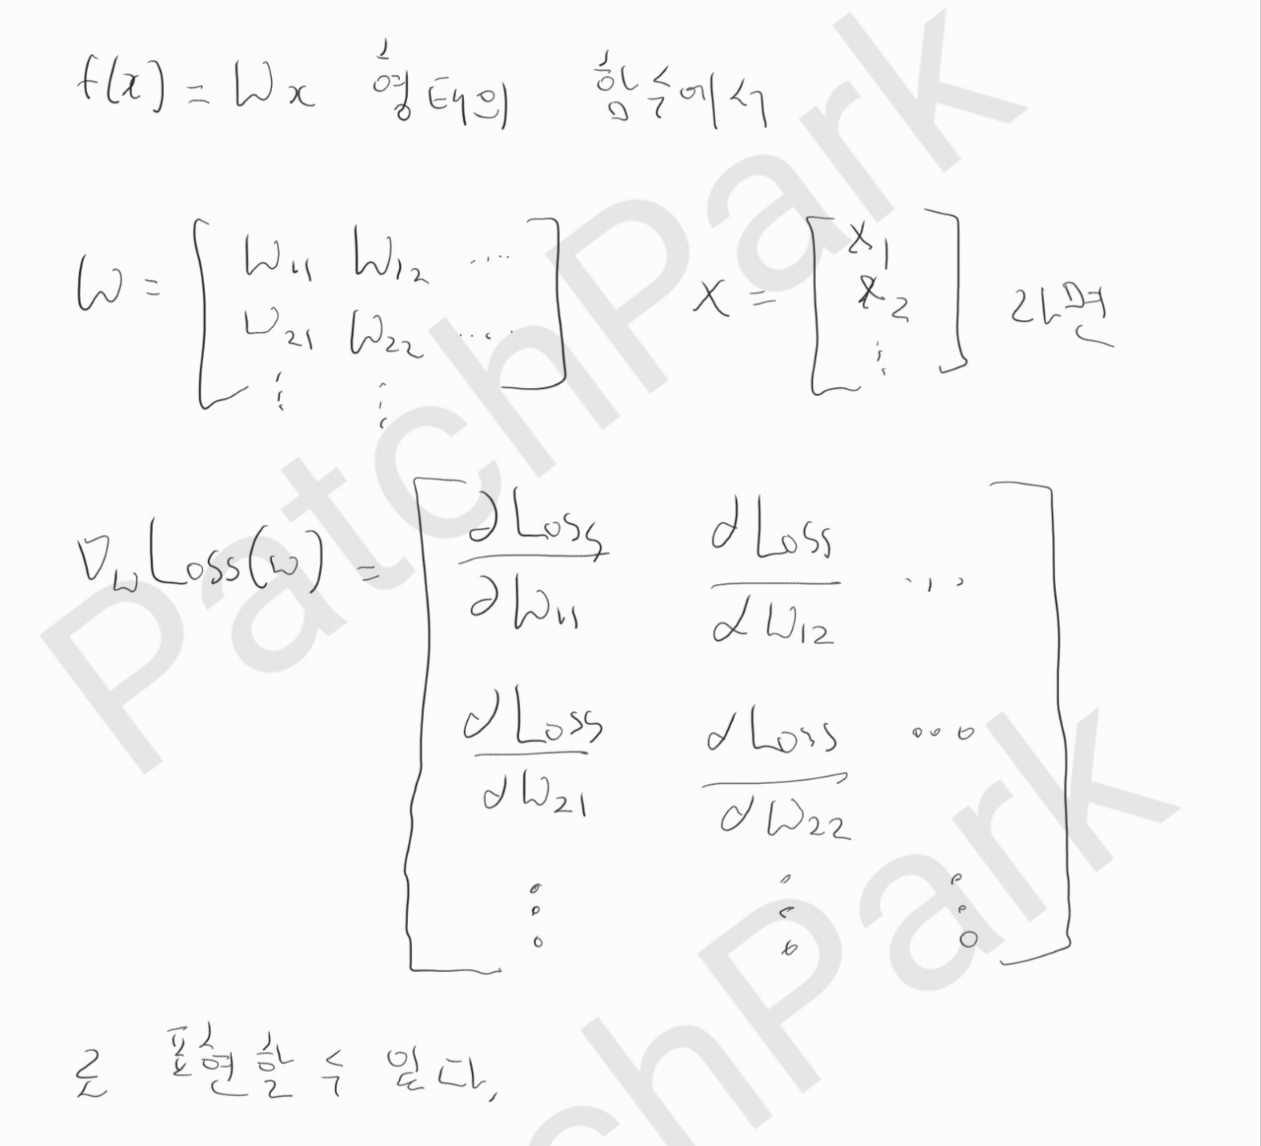 f(x) = Wx 형태의 함수에서
W = [ W11 W12 ....
W21 W22 ....
⋮ ⋮ ] X = [ x1
x2
⋮ ] 라면
∇w Loss(w) = [ ∂Loss/∂W11 ∂Loss/∂W12 ...
∂Loss/∂W21 ∂Loss/∂W22 ...
⋮ ⋮ ⋮ ]
로 표현할 수 있다.
PatchPark
PatchPark